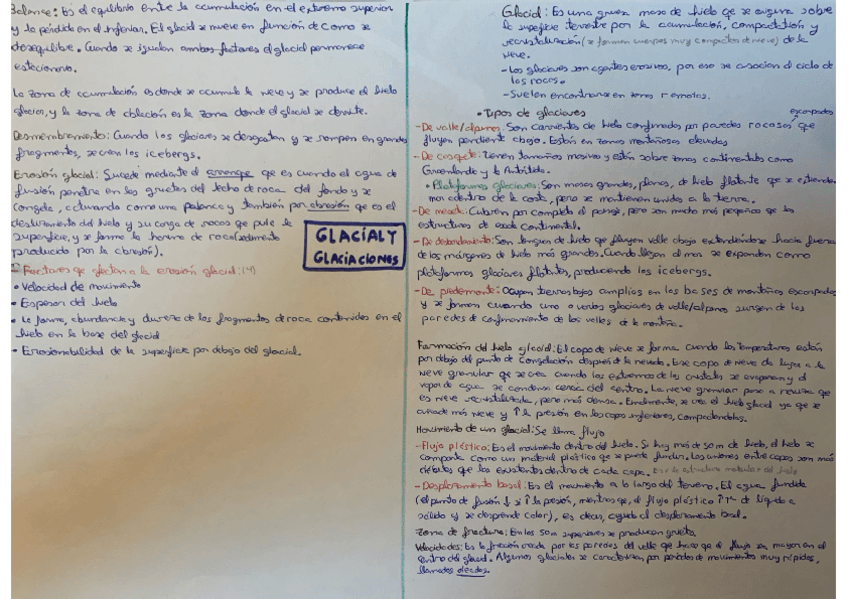 Balance: Es el equilibrio entre la acumulación en el extremo superior
y la pérdida en el inferior. El glacial se mueve en función de como se
desequilibre. Cuando se igualan ambos factores el glacial permanece
estacionario.
La zona de acumulación es donde se acumula la nieve y se produce el hielo
glaciar, y la zona de ablación es la zona donde el glacial se derrite.
Desmembramiento: Cuando los glaciares se desgastan y se rompen en grandes
fragmentos, se crean los icebergs.
Erosión glacial: Sucede mediante el arranque que es cuando el agua de
fusión penetra en las grietas del lecho de roca del fondo y se
congela, actuando como una palanca y también por abrasión que es el
deslizamiento del hielo y su carga de rocas que pule la
superficie, y se forma la harina de roca (sedimento
producido por la abrasión).
- Factores que afectan a la erosión glacial: (4)
• Velocidad de movimiento
• Espesor del hielo
• La forma, abundancia y dureza de los fragmentos de roca contenidos en el
hielo en la base del glacial
• Erosionabilidad de la superficie por debajo del glacial.
GLACIAL Y
GLACIACIONES
Glacial: Es una gruesa masa de hielo que se origina sobre
la superficie terrestre por la acumulación, compactación y
recristalización (se forman cuerpos muy compactos de nieve) de la
nieve.
- Los glaciares son agentes erosivos, por eso se asocian al ciclo de
las rocas.
- Suelen encontrarse en zonas remotas.
• Tipos de glaciares
- De valle/alpinos: Son corrientes de hielo confinadas por paredes rocosas escarpadas que
fluyen pendiente abajo. Están en zonas montañosas elevadas
- De casquete: tienen tamaños masivos y están sobre zonas continentales como
Groenlandia y la Antártida.
• Plataformas glaciares: Son masas grandes, planas, de hielo flotante que se extienden
mar adentro de la costa, pero se mantienen unidas a la tierra.
- De meseta: Cubren por completo el paisaje, pero son mucho más pequeños que las
estructuras de escala continental.
- De desbordamiento: Son lenguas de hielo que fluyen valle abajo extendiéndose hacia fuera
de los márgenes de hielo más grandes. Cuando llegan al mar se expanden como
plataformas glaciares flotantes, produciendo los icebergs.
- De piedemonte: Ocupan tierras bajas amplias en las bases de montañas escarpadas
y se forman cuando uno o varios glaciares de valle/alpinos surgen de las
paredes de confinamiento de los valles de la montaña.
Formación del hielo glacial: El copo de nieve se forma cuando las temperaturas están
por debajo del punto de congelación después de la nevada. Ese copo de nieve da lugar a la
nieve granular que se crea cuando los extremos de los cristales se evaporan y el
vapor de agua se condensa cerca del centro. La nieve granular pasa a neviza que
es nieve recristalizada, pero más densa. Finalmente, se crea el hielo glacial ya que se
añade más nieve y ↑ la presión en las capas inferiores, compactándolas.
Movimiento de un glacial: Se llama flujo
- Flujo plástico: Es el movimiento dentro del hielo. Si hay más de 50m de hielo, el hielo se
comporta como un material plástico que se puede fundir. Las uniones entre capas son más
débiles que las existentes dentro de cada capa. Es la estructura molecular del hielo
- Desplazamiento basal: Es el movimiento a lo largo del terreno. El agua fundida
(el punto de fusión ↓ si ↑ la presión, mientras que, el flujo plástico ↑ Tª de líquido a
sólido y se desprende calor), es decir, ayuda al desplazamiento basal.
Zona de fractura: En los 50m superiores se producen grietas.
Velocidades: Es la fricción creada por las paredes del valle que hace que el flujo sea mayor en el
centro del glacial. Algunos glaciales se caracterizan por periodos de movimientos muy rápidos,
llamados oleadas.